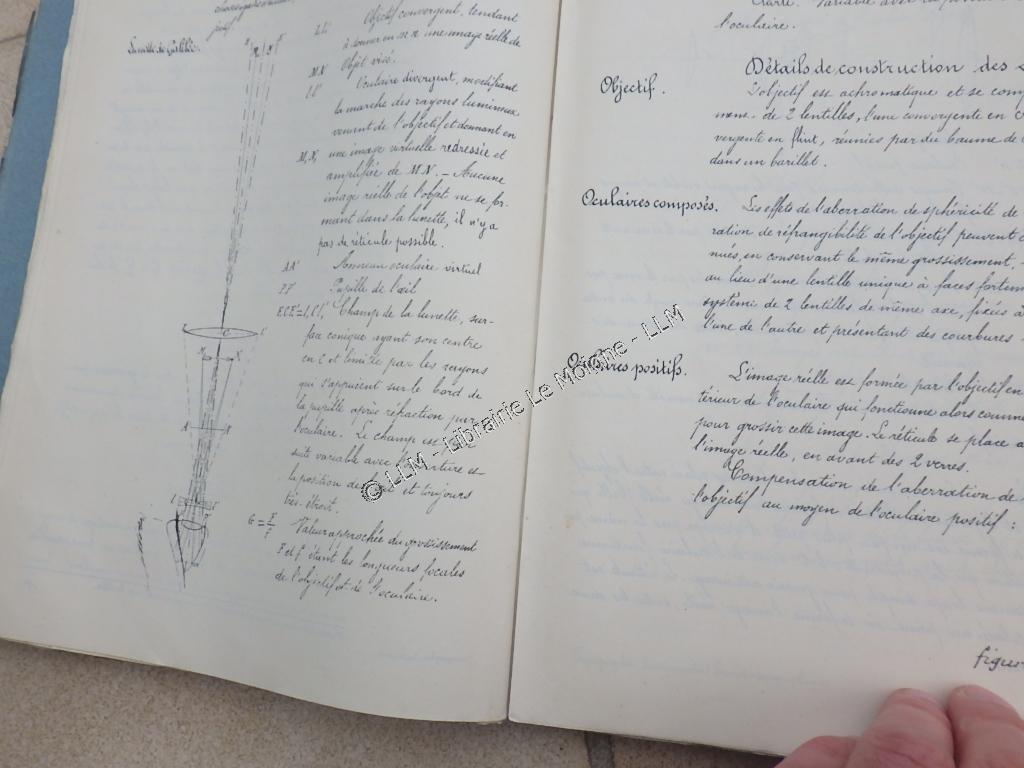 Lunette de Galilée.
LL' Objectif convergent, tendant
à donner en M N une image réelle de
MN l'objet visé.
l l' Oculaire divergent, modifiant
la marche des rayons lumineux
venant de l'objectif et donnant en
M,N, une image virtuelle redressée et
amplifiée de M N. - Aucune
image réelle de l'objet ne se for-
mant dans la lunette, il n'y a
pas de réticule possible.
AA' Anneau oculaire virtuel
PP' Pupille de l'œil
Champ de la lunette, sur-
face conique ayant son centre
en C et limitée par les rayons
qui s'appuient sur le bord de
la pupille après réfraction par
l'oculaire. Le champ est
variable avec l'ouverture et
la position de et toujours
très étroit.
G = F/f Valeur approchée du grossissement
F et f étant les longueurs focales
de l'objectif et de l'oculaire.
l'oculaire.
Détails de construction des
Objectif. L'objectif est achromatique et se comp
de 2 lentilles, l'une convergente en
vergente en flint, réunies par du baume de
dans un barillet.
Oculaires composés. Les effets de l'aberration de sphéricité de
ration de réfrangibilité de l'objectif peuvent
nués, en conservant le même grossissement,
au lieu d'une lentille unique à faces fortem
système de 2 lentilles de même axe, fixées à
l'une de l'autre et présentant des courbures
Oculaires positifs. L'image réelle est formée par l'objectif en
térieur de l'oculaire qui fonctionne alors comme
pour grossir cette image. Le réticule se place a
l'image réelle, en avant des 2 verres.
Compensation de l'aberration de
l'objectif au moyen de l'oculaire positif :
figur
© LLM - Librairie Le Moigne - LLM